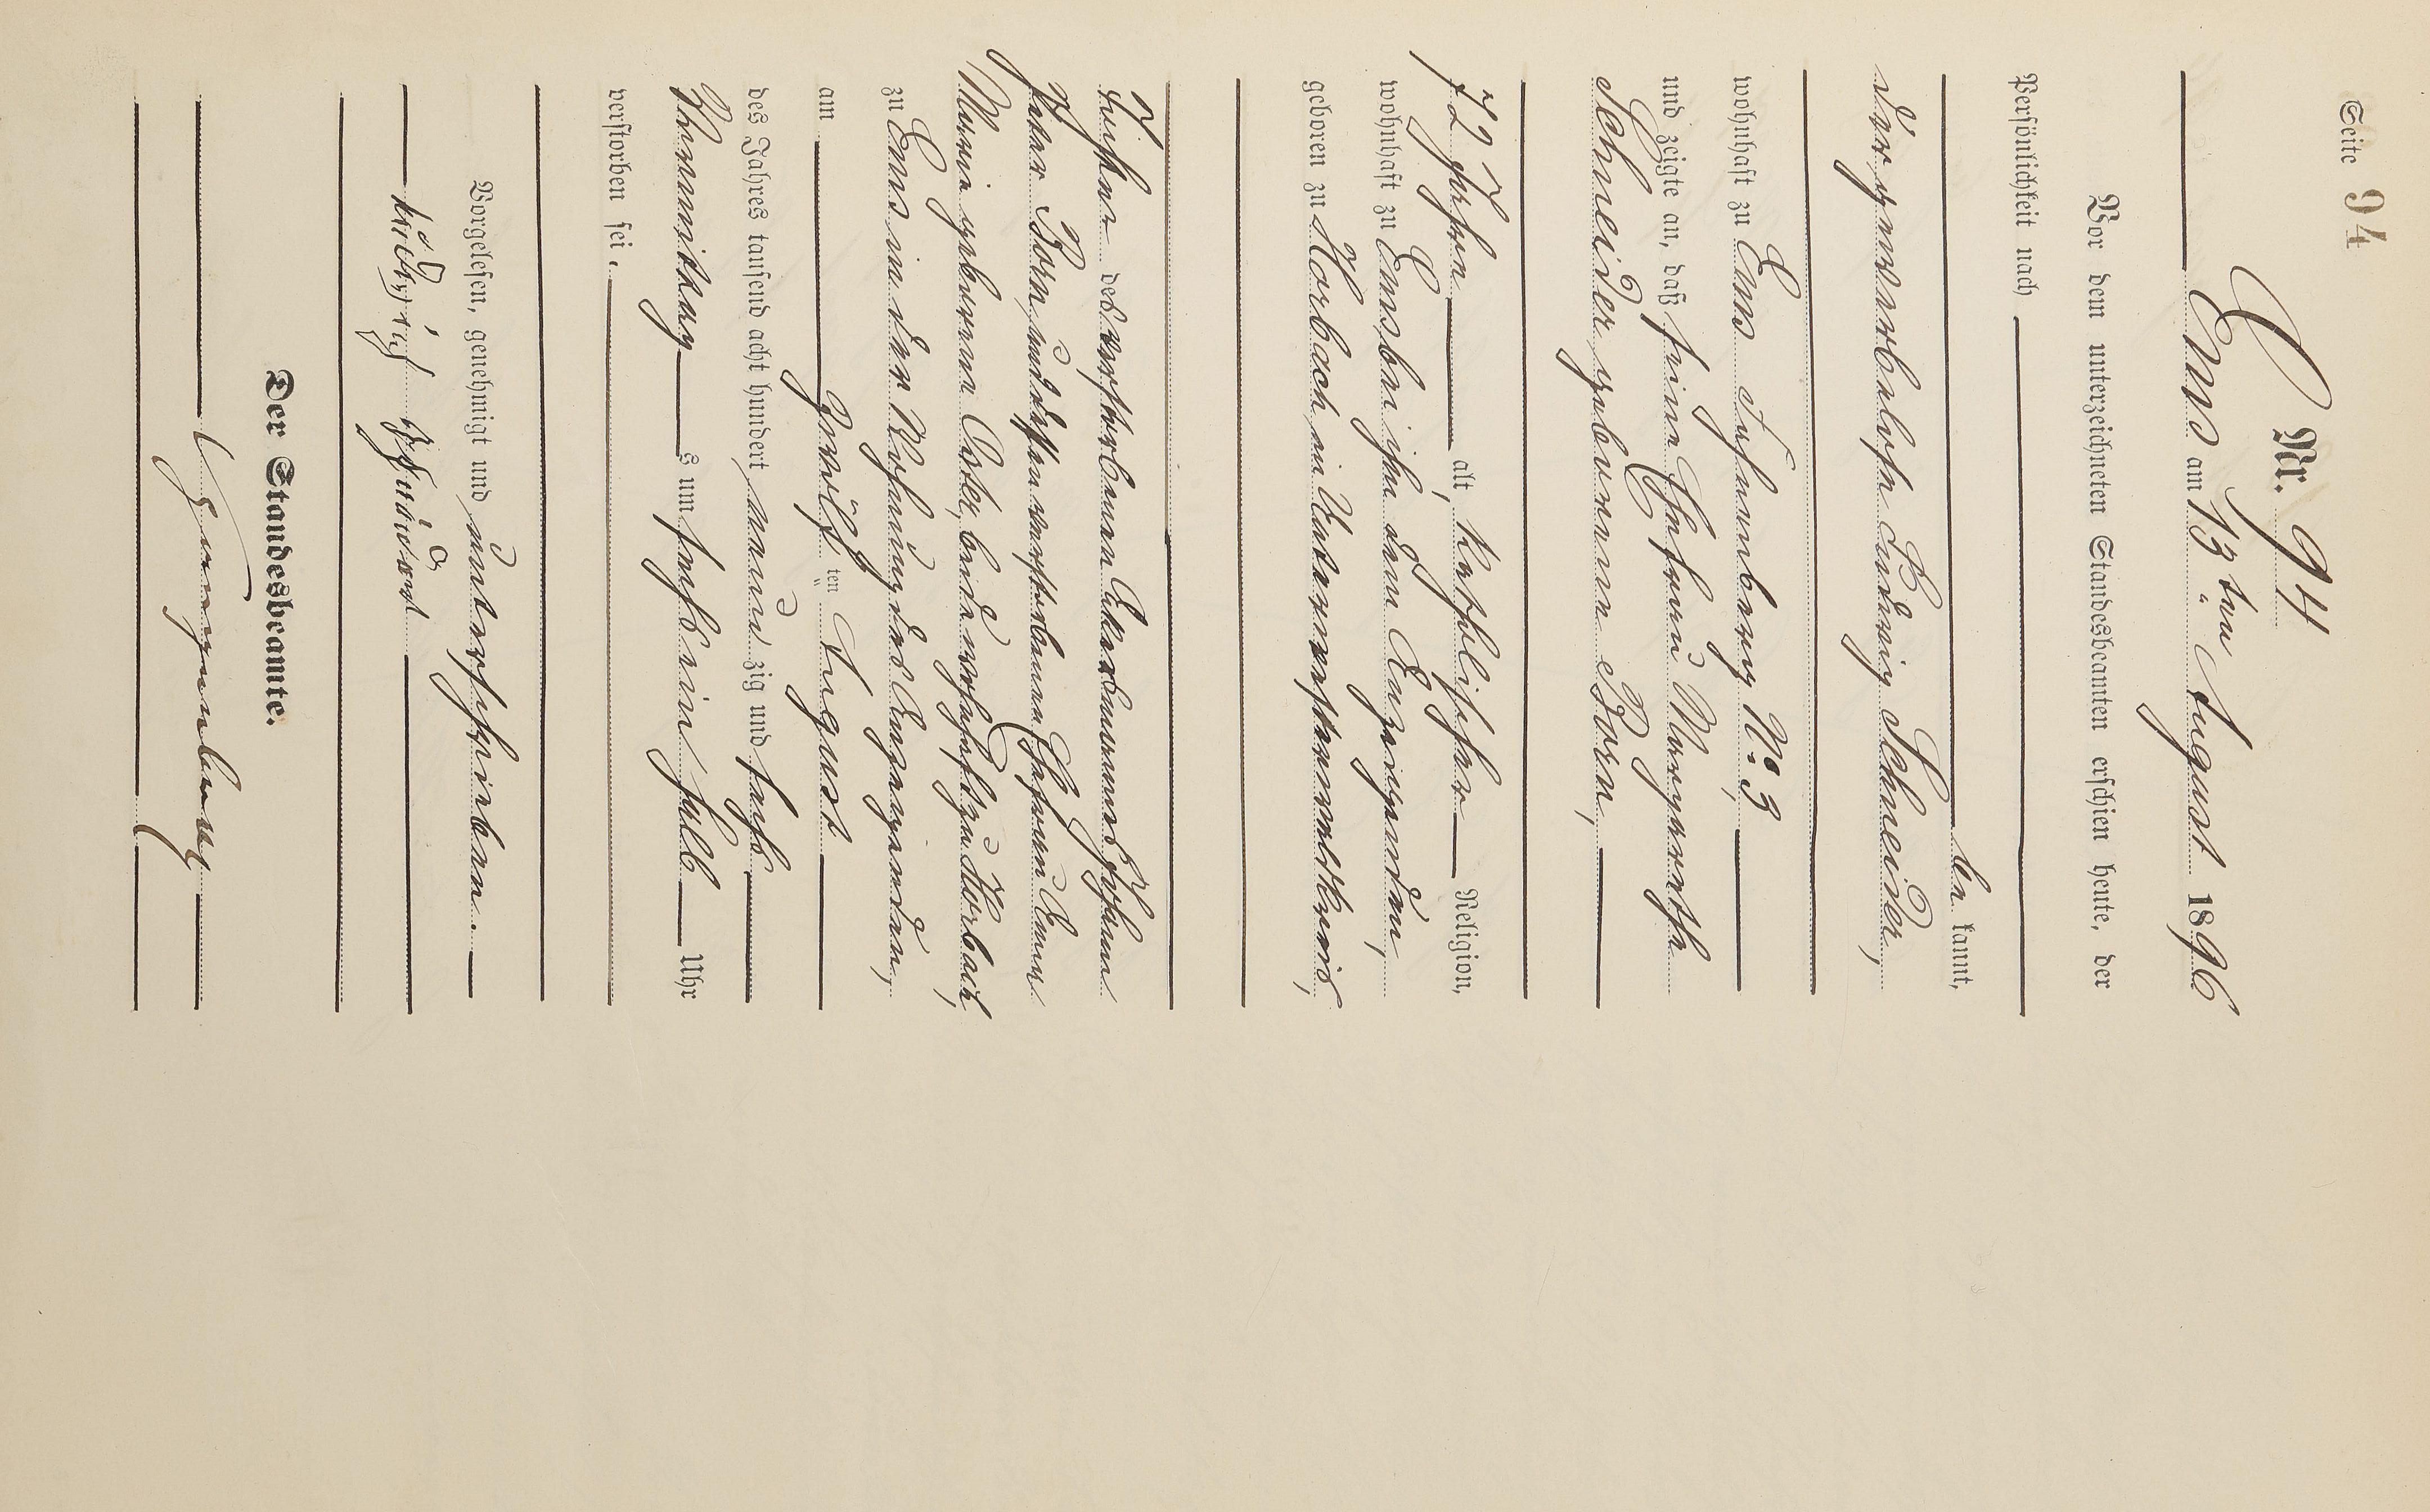 Seite 94
Nr. 94
Ems am 13ten August 1896
Vor dem unterzeichneten Standesbeamten erschien heute, der
Persönlichkeit nach
be kannt,
der gewerbelose Ludwig Schneider,
wohnhaft zu Ems Hahnenberg No 3,
und zeigte an, daß seine Ehefrau Margareth
Schneider geborene Born,
72 Jahre alt, katholischer Religion,
wohnhaft zu Ems, bei ihm dem Anzeigenden,
geboren zu Horbach im Unterwesterwaldkreis,
Tochter des verstorbenen Johann
Peter Born, und dessen verstorbenen Ehefrau Anna
Maria geborene beide wohnhaft zu Horbach,
zu Ems in der Wohnung des Anzeigenden,
am zwölf ten August
des Jahres tausend acht hundert neun zig und sechs
Vormittags um sechs ein halb Uhr
verstorben sei.
Vorgelesen, genehmigt und unterschrieben.
Ludwig Schneider
Der Standesbeamte.